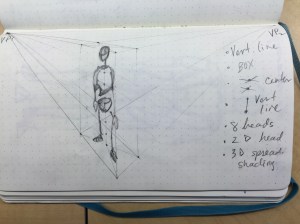 VP
VP
• Vert line
• BOX
center
• Vert
line
• 8 heads
• 2D head
• 3D spread
shading